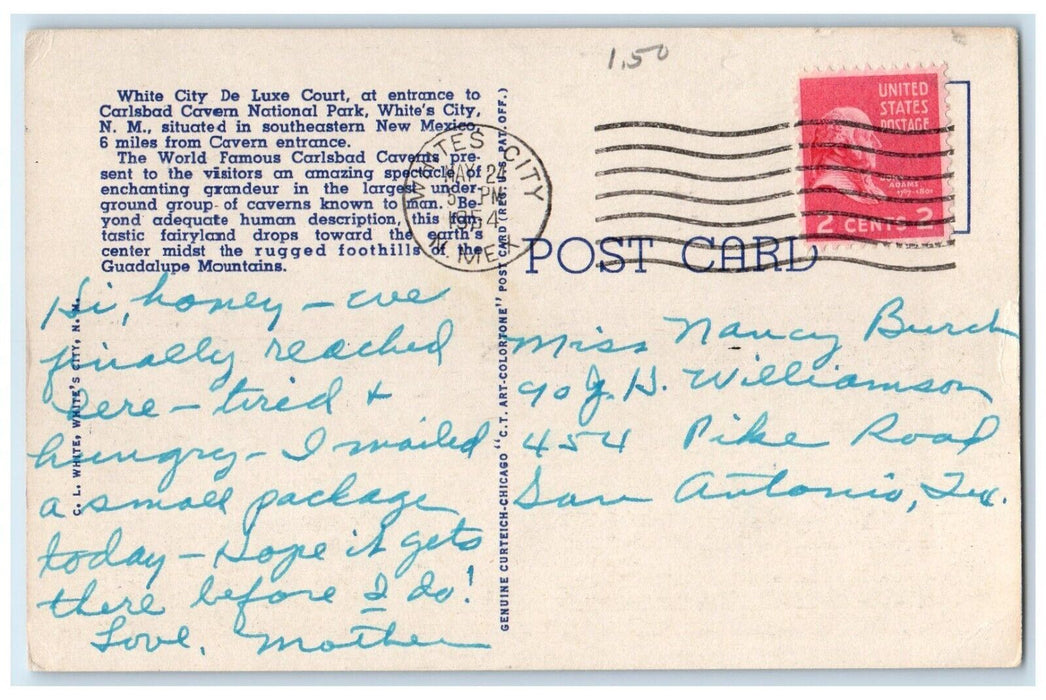 1.50
White City De Luxe Court, at entrance to
Carlsbad Cavern National Park, White's City,
N. M., situated in southeastern New Mexico,
6 miles from Cavern entrance.
The World Famous Carlsbad Caverns pre-
sent to the visitors an amazing spectacle of
enchanting grandeur in the largest under-
ground group of caverns known to man. Be-
yond adequate human description, this fan-
tastic fairyland drops toward the earth's
center midst the rugged foothills of the
Guadalupe Mountains.
WHITES CITY
MAY 24
5 PM
1954
N. MEX.
UNITED
STATES
POSTAGE
JOHN
ADAMS
1797-1801
2 CENTS 2
POST CARD
C. L. WHITE, WHITE'S CITY, N. M.
GENUINE CURTEICH-CHICAGO "C. T. ART-COLORTONE" POST CARD (REG. U. S. PAT. OFF.)
Hi, honey – we
finally reached
here – tired +
hungry – I mailed
a small package
today – Hope it gets
there before I do!
Love, Mother
Miss Nancy Burch
℅ J. H. Williamson
454 Pike Road
San Antonio, Tex.